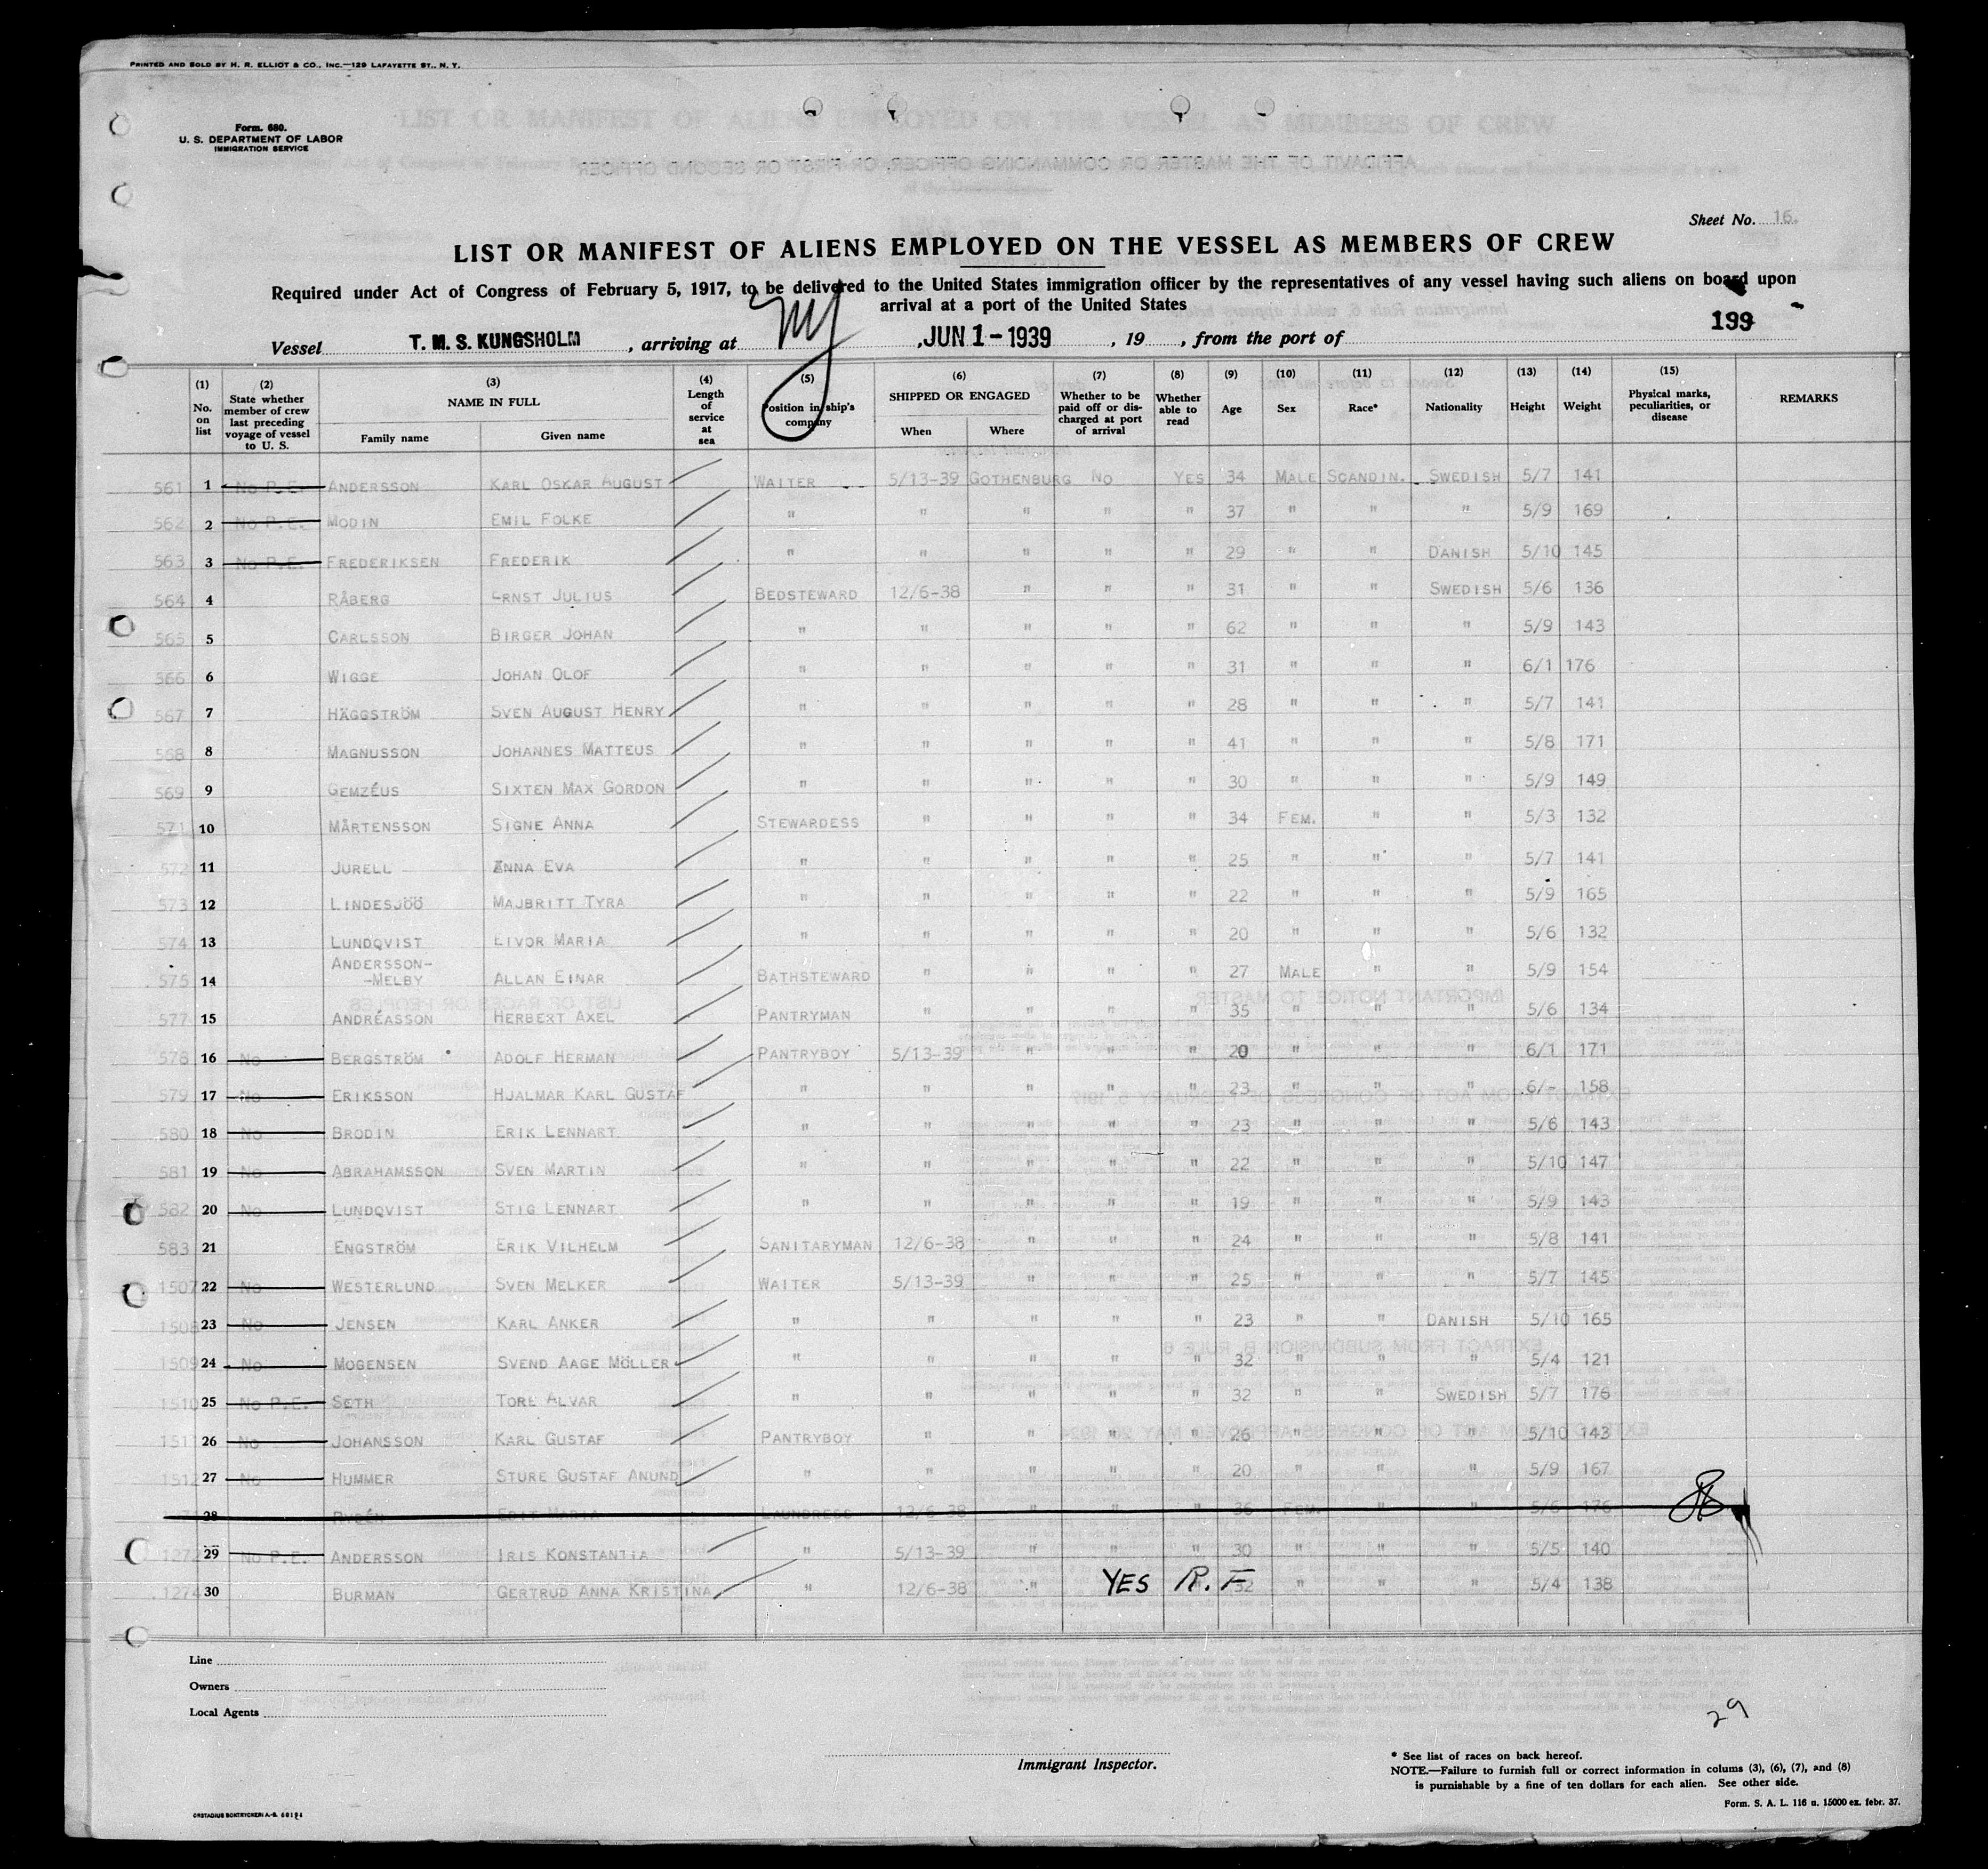 PRINTED AND SOLD BY H. R. ELLIOT & CO., INC.—129 LAFAYETTE ST., N. Y.
Form. 680.
U. S. DEPARTMENT OF LABOR
IMMIGRATION SERVICE
Sheet No. 16.
LIST OR MANIFEST OF ALIENS EMPLOYED ON THE VESSEL AS MEMBERS OF CREW
Required under Act of Congress of February 5, 1917, to be delivered to the United States immigration officer by the representatives of any vessel having such aliens on board upon
arrival at a port of the United States
199
Vessel T. M. S. KUNGSHOLM, arriving at NY, JUN 1-1939, 19, from the port of
(1) No. on list (2) State whether member of crew last preceding voyage of vessel to U. S. (3) NAME IN FULL Family name Given name (4) Length of service at sea (5) Position in ship's company (6) SHIPPED OR ENGAGED When Where (7) Whether to be paid off or discharged at port of arrival (8) Whether able to read (9) Age (10) Sex (11) Race* (12) Nationality (13) Height (14) Weight (15) Physical marks, peculiarities, or disease REMARKS
561 1 No P.E. ANDERSSON KARL OSKAR AUGUST WAITER 5/13-39 GOTHENBURG NO YES 34 MALE SCANDIN. SWEDISH 5/7 141
562 2 No P.E. MODIN EMIL FOLKE " " " " " 37 " " " 5/9 169
563 3 No P.E. FREDERIKSEN FREDERIK " " " " " 29 " " DANISH 5/10 145
564 4 RÅBERG ERNST JULIUS BEDSTEWARD 12/6-38 " " " 31 " " SWEDISH 5/6 136
565 5 CARLSSON BIRGER JOHAN " " " " " 62 " " " 5/9 143
566 6 WIGGE JOHAN OLOF " " " " " 31 " " " 6/1 176
567 7 HÄGGSTRÖM SVEN AUGUST HENRY " " " " " 28 " " " 5/7 141
568 8 MAGNUSSON JOHANNES MATTEUS " " " " " 41 " " " 5/8 171
569 9 GEMZÉUS SIXTEN MAX GORDON " " " " " 30 " " " 5/9 149
571 10 MÅRTENSSON SIGNE ANNA STEWARDESS " " " " 34 FEM. " " 5/3 132
572 11 JURELL ANNA EVA " " " " " 25 " " " 5/7 141
573 12 LINDESJÖÖ MAJBRITT TYRA " " " " " 22 " " " 5/9 165
574 13 LUNDQVIST EIVOR MARIA " " " " " 20 " " " 5/6 132
575 14 ANDERSSON--MELBY ALLAN EINAR BATHSTEWARD " " " " 27 MALE " " 5/9 154
577 15 ANDRÉASSON HERBERT AXEL PANTRYMAN " " " " 35 " " " 5/6 134
578 16 No BERGSTRÖM ADOLF HERMAN PANTRYBOY 5/13-39 " " " 20 " " " 6/1 171
579 17 No ERIKSSON HJALMAR KARL GUSTAF " " " " " 23 " " " 6/- 158
580 18 No BRODIN ERIK LENNART " " " " " 23 " " " 5/6 143
581 19 No ABRAHAMSSON SVEN MARTIN " " " " " 22 " " " 5/10 147
582 20 No LUNDQVIST STIG LENNART " " " " " 19 " " " 5/9 143
583 21 ENGSTRÖM ERIK VILHELM SANITARYMAN 12/6-38 " " " 24 " " " 5/8 141
1507 22 No WESTERLUND SVEN MELKER WAITER 5/13-39 " " " 25 " " " 5/7 145
1508 23 No JENSEN KARL ANKER " " " " " 23 " " DANISH 5/10 165
1509 24 No MOGENSEN SVEND AAGE MÖLLER " " " " " 32 " " " 5/4 121
1510 25 No P.E. SETH TORE ALVAR " " " " " 32 " " SWEDISH 5/7 176
1511 26 No JOHANSSON KARL GUSTAF PANTRYBOY " " " " 26 " " " 5/10 143
1512 27 No HUMMER STURE GUSTAF ANUND " " " " " 20 " " " 5/9 167
28 RYDÉN EDIT MARIA LAUNDRESS 12/6-38 " " " 36 FEM. " " 5/6 176
1272 29 No P.E. ANDERSSON IRIS KONSTANTIA " 5/13-39 " " " 30 " " " 5/5 140
1274 30 BURMAN GERTRUD ANNA KRISTINA " 12/6-38 " YES R. F 32 " " " 5/4 138
Line
Owners
Local Agents
29
Immigrant Inspector.
* See list of races on back hereof.
NOTE.—Failure to furnish full or correct information in colums (3), (6), (7), and (8)
is purnishable by a fine of ten dollars for each alien. See other side.
Form. S. A. L. 116 a. 15000 ex. febr. 37.